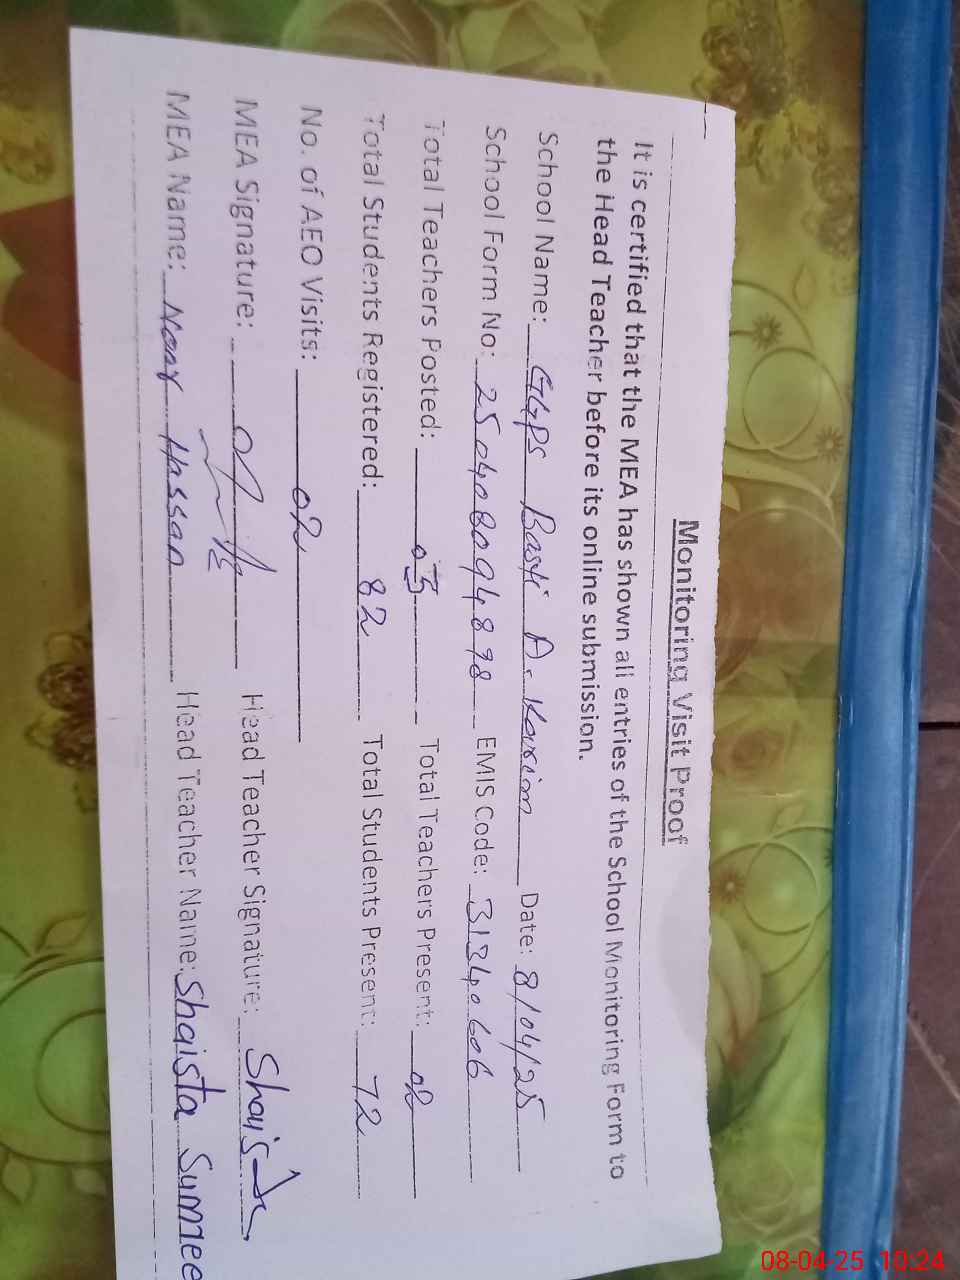 Monitoring Visit Proof
It is certified that the MEA has shown all entries of the School Monitoring Form to
the Head Teacher before its online submission.
School Name: GGPS Basti A. Karim Date: 8/04/25
School Form No: 250408094898 EMIS Code: 31340606
Total Teachers Posted: 03 Total Teachers Present: 02
Total Students Registered: 82 Total Students Present: 72
No. of AEO Visits: 02
MEA Signature: Head Teacher Signature: Shaista
MEA Name: Hassan Head Teacher Name: Shaista Sumee
08-04-25 10:24